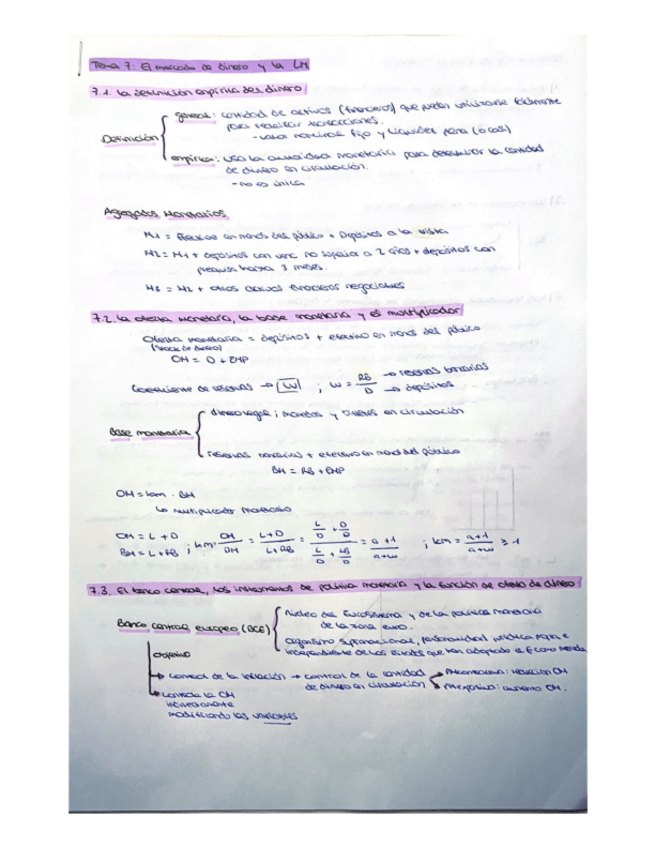 Tema 7: El mercado de dinero y la LM
7.1. La definición empírica del dinero
Definición
general: cantidad de activos (financieros) que pueden utilizarse fácilmente
para realizar transacciones.
- valor nominal fijo y liquidez plena (o casi)
empírica: usa la autoridad monetaria para determinar la cantidad
de dinero en circulación.
- no es única
Agregados Monetarios
M1 = Efectivo en manos del público + Depósitos a la vista
M2 = M1 + depósitos con venc. no superior a 2 años + depósitos con
preaviso hasta 3 meses.
M3 = M2 + otros activos financieros negociables
7.2. La oferta monetaria, la base monetaria y el multiplicador
Oferta monetaria = depósitos + efectivo en manos del público
(stock de dinero)
OM = D + EMP
Coeficiente de reservas → W ; w = RB/D → reservas bancarias → depósitos
Base monetaria
dinero legal; monedas y billetes en circulación
reservas bancarias + efectivo en manos del público
BM = RB + EMP
OM = km · BM
↳ multiplicador monetario
OM = L + D
BM = L + RB ; km = OM/BM = (L+D)/(L+RB) = (L/D + D/D)/(L/D + RB/D) = (a+1)/(a+w) ; km = (a+1)/(a+w) ≥ 1
7.3. El banco central, los instrumentos de política monetaria y la función de oferta de dinero
Banco central europeo (BCE)
Núcleo del Eurosistema y de la política monetaria
de la zona euro.
Organismo supranacional, personalidad jurídica propia e
independiente de los Estados que han adoptado el € como moneda
objetivo
→ control de la inflación → control de la cantidad
de dinero en circulación
PM contractiva: reducción OM
PM expansiva: aumento OM.
→ controla la OM
indirectamente
modificando las variables